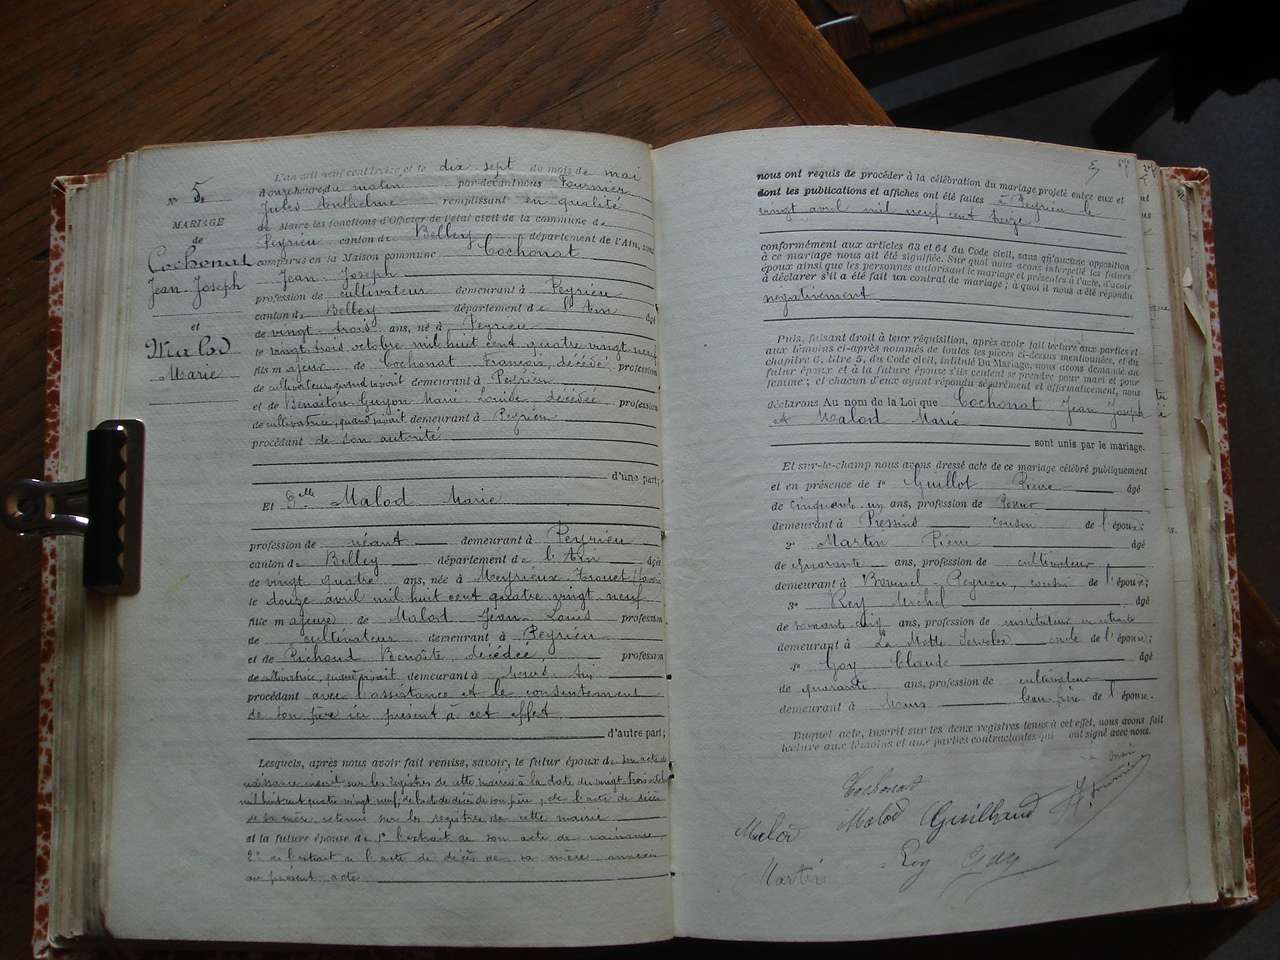 N° 5
MARIAGE
de
Cochonat
Jean Joseph
et
Malod
Marie
L'an mil neuf cent treize et le dix sept du mois de mai
heure du matin par-devant nous Fournier
Jules Anthelme remplissant en qualité
de Maire les fonctions d'Officier de l'état civil de la commune de
Peyrieu canton de Belley département de l'Ain, sont
comparus en la Maison commune Cochonat
Jean Joseph
profession de cultivateur demeurant à Peyrieu
canton de Belley département de l'Ain âgé
de vingt trois ans, né à Peyrieu
le vingt trois octobre mil huit cent quatre vingt neuf
fils majeur de Cochonat François, décédé profession
de cultivateur, quand vivait demeurant à Peyrieu
et de Benoiton Guyon Marie Louise, décédée profession
de cultivatrice, quand vivait demeurant à Peyrieu
procédant de son autorité
d'une part;
Et Dlle Malod Marie
profession de néant demeurant à Peyrieu
canton de Belley département de l'Ain âgée
de vingt quatre ans, née à Meyrieux Trouet
le douze avril mil huit cent quatre vingt neuf
fille majeure de Malod Jean Louis profession
de cultivateur demeurant à Peyrieu
et de Pichoud Benoîte, décédée, profession
de cultivatrice, quand vivait demeurant à
procédant avec l'assistance et le consentement
de son père ici présent à cet effet
d'autre part;
Lesquels, après nous avoir fait remise, savoir, le futur époux de son acte de
naissance inscrit sur les registres de cette mairie à la date du vingt trois octobre
mil huit cent quatre vingt neuf, de l'acte de décès de son père, de l'acte de décès
de sa mère, retenus sur les registres de cette mairie
et la future épouse de 1° l'extrait de son acte de naissance,
2° de l'extrait de l'acte de décès de sa mère, annexés
au présent acte
nous ont requis de procéder à la célébration du mariage projeté entre eux et
dont les publications et affiches ont été faites à Peyrieu le
vingt avril mil neuf cent treize
conformément aux articles 63 et 64 du Code civil, sans qu'aucune opposition
à ce mariage nous ait été signifiée. Sur quoi nous avons interpellé les futurs
époux ainsi que les personnes autorisant le mariage et présentes à l'acte, d'avoir
à déclarer s'il a été fait un contrat de mariage; à quoi il nous a été répondu
négativement
Puis, faisant droit à leur réquisition, après avoir fait lecture aux parties et
aux témoins ci-après nommés de toutes les pièces ci-dessus mentionnées, et du
chapitre 6, titre 5, du Code civil, intitulé Du Mariage, nous avons demandé au
futur époux et à la future épouse s'ils veulent se prendre pour mari et pour
femme; et chacun d'eux ayant répondu séparément et affirmativement, nous
déclarons Au nom de la Loi que Cochonat Jean Joseph
et Malod Marie
sont unis par le mariage.
Et sur-le-champ nous avons dressé acte de ce mariage célébré publiquement
et en présence de 1° Guillot Pierre âgé
de cinquante un ans, profession de
demeurant à Pressins cousin de l'époux;
2° Martin Pierre âgé
de quarante ans, profession de cultivateur
demeurant à Peyrieu, cousin de l'époux;
3° Rey Michel âgé
de soixante ans, profession de instituteur en retraite
demeurant à La Motte Servolex oncle de l'épouse;
4° Goy Claude âgé
de quarante ans, profession de cultivateur
demeurant à beau frère de l'épouse.
Duquel acte, inscrit sur les deux registres tenus à cet effet, nous avons fait
lecture aux témoins et aux parties contractantes qui ont signé avec nous.
Cochonat
Malod Malod
Martin Rey Goy